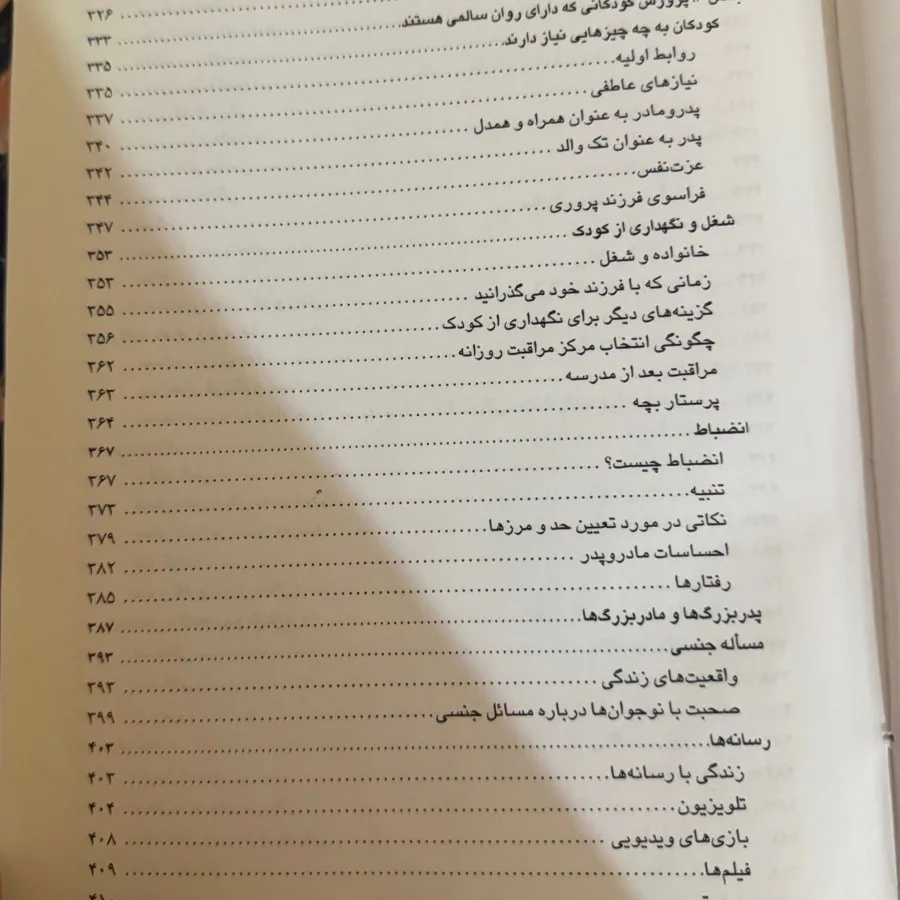 ۳۲۶
پرورش کودکانی که دارای روان سالمی هستند ........ ۳۳۳
کودکان به چه چیزهایی نیاز دارند ........ ۳۳۵
روابط اولیه ........ ۳۳۵
نیازهای عاطفی ........ ۳۳۷
پدرومادر به عنوان همراه و همدل ........ ۳۴۰
پدر به عنوان تک والد ........ ۳۴۲
عزت‌نفس ........ ۳۴۴
فراسوی فرزند پروری ........ ۳۴۷
شغل و نگهداری از کودک ........ ۳۵۳
خانواده و شغل ........ ۳۵۳
زمانی که با فرزند خود می‌گذرانید ........ ۳۵۵
گزینه‌های دیگر برای نگهداری از کودک ........ ۳۵۶
چگونگی انتخاب مرکز مراقبت روزانه ........ ۳۶۲
مراقبت بعد از مدرسه ........ ۳۶۳
پرستار بچه ........ ۳۶۴
انضباط ........ ۳۶۷
انضباط چیست؟ ........ ۳۶۷
تنبیه ........ ۳۷۳
نکاتی در مورد تعیین حد و مرزها ........ ۳۷۹
احساسات مادروپدر ........ ۳۸۲
رفتارها ........ ۳۸۵
پدربزرگ‌ها و مادربزرگ‌ها ........ ۳۸۷
مسأله جنسی ........ ۳۹۳
واقعیت‌های زندگی ........ ۳۹۳
صحبت با نوجوان‌ها درباره مسائل جنسی ........ ۳۹۹
رسانه‌ها ........ ۴۰۳
زندگی با رسانه‌ها ........ ۴۰۳
تلویزیون ........ ۴۰۴
بازی‌های ویدیویی ........ ۴۰۸
فیلم‌ها ........ ۴۰۹